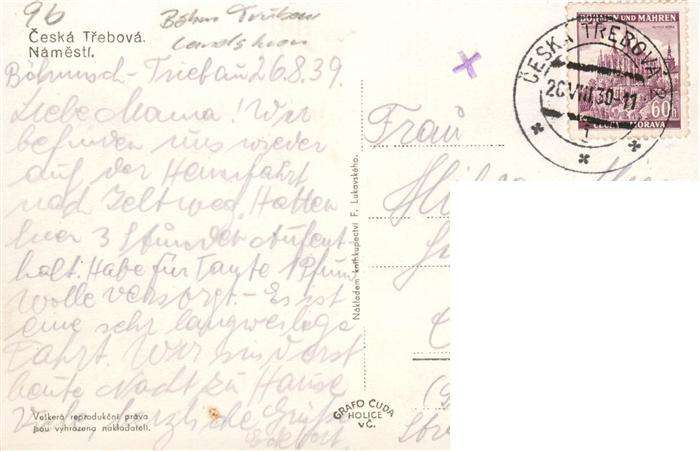 96
Böhm Trübau
Landskron
Česká Třebová.
Náměstí.
Böhmisch-Triebau 26.8.39.
Liebe Mama! Wir
befinden uns wieder
auf der Heimfahrt
nach Zeltweg. Hatten
hier 3 Stunden Aufent-
halt. Habe für Tante 1 Pfund
Wolle versorgt. - Es ist
eine sehr langweilige
Fahrt. Wir sind erst
heute Nacht zu Hause
herzliche Grüße
Veškerá reprodukční práva
jsou vyhrazena nakladateli.
Nákladem knihkupectví F. Lukavského.
GRAFO ČUDA
HOLICE
v Č.
Frau
ČESKÁ TŘEBOVÁ 2
26.VIII.39-11
BÖHMEN UND MÄHREN
60h
MORAVA